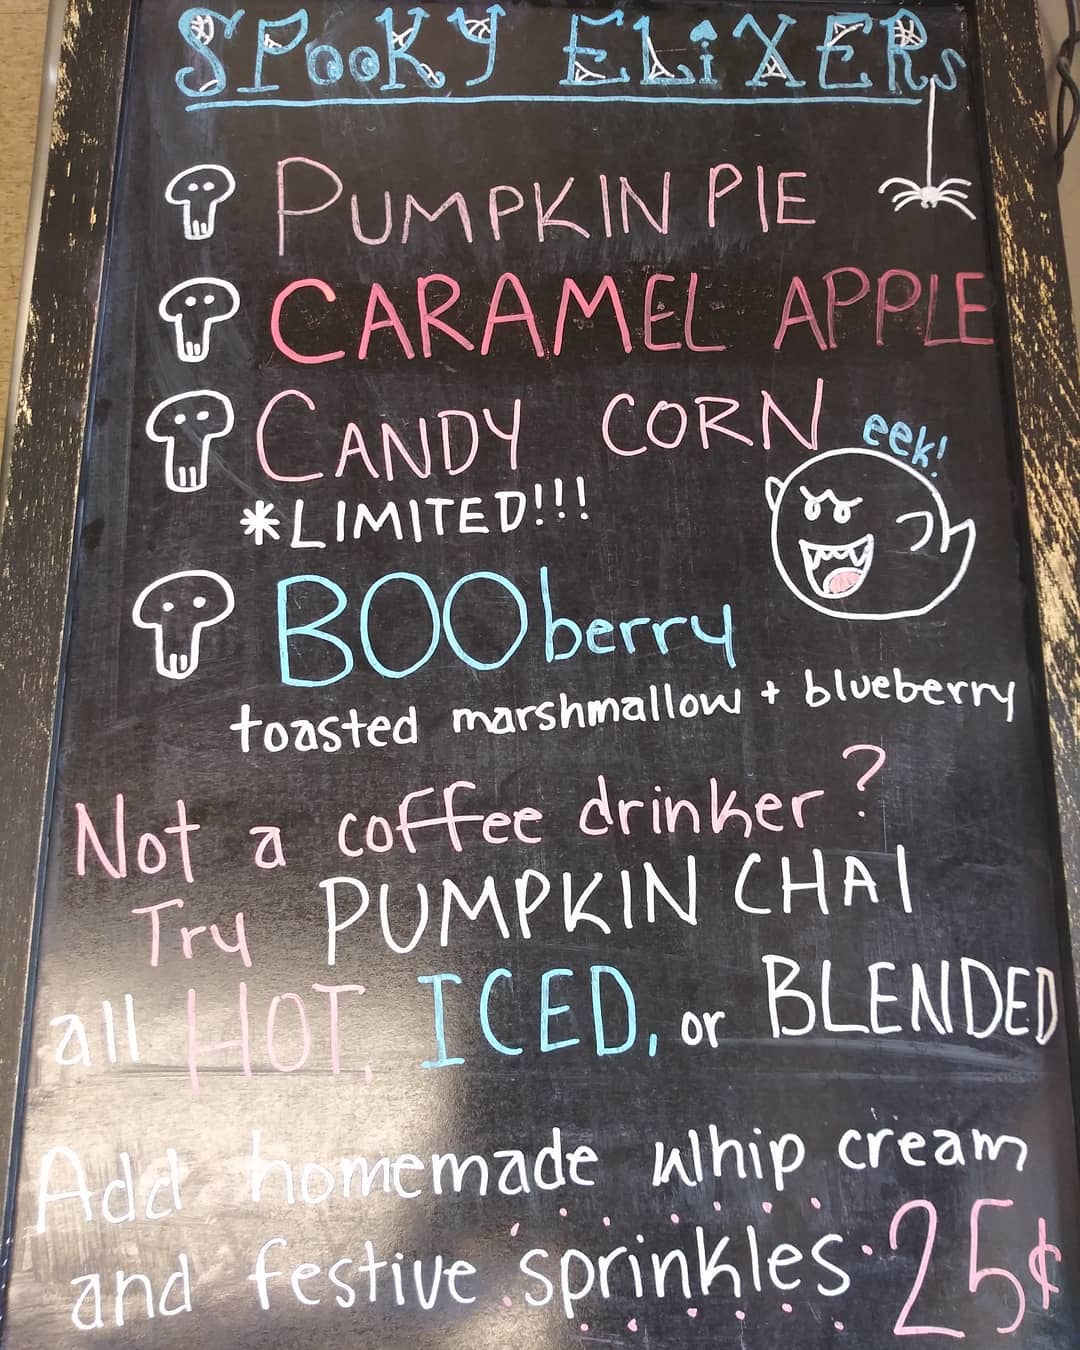 SPooKY ELiXERs
PUMPKIN PIE
CARAMEL APPLE
CANDY CORN
eek!
*LIMITED!!!
BOOberry
toasted marshmallow + blueberry
Not a coffee drinker?
Try PUMPKIN CHAI
all HOT, ICED, or BLENDED
Add homemade whip cream
and festive sprinkles 25¢